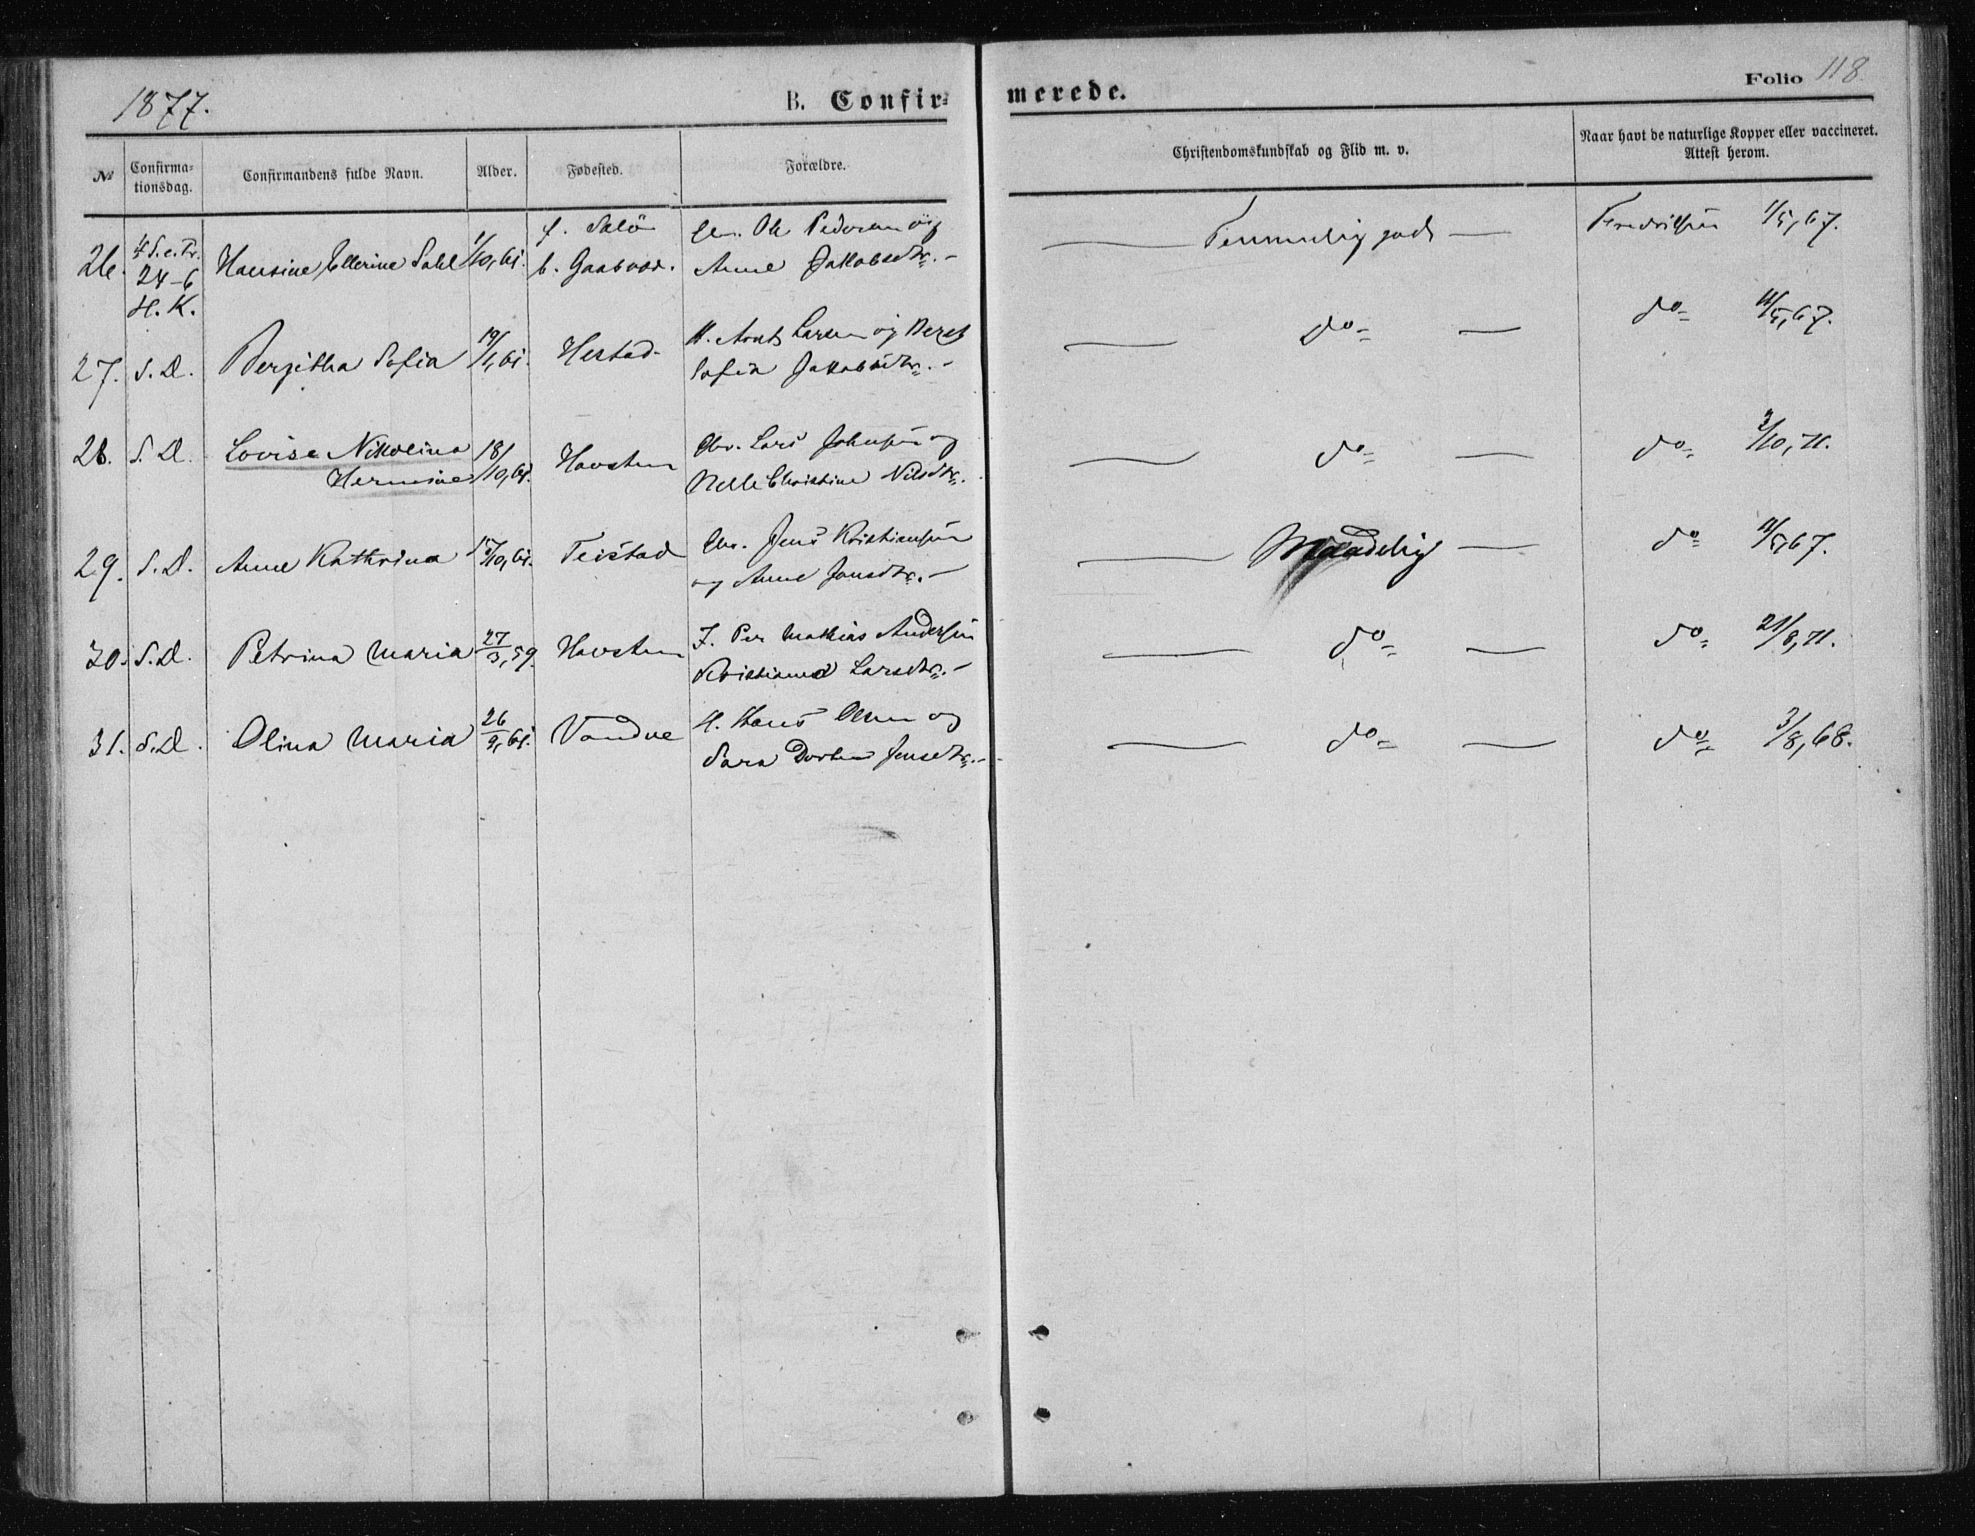 1877.
B. Confir-
merede.
Folio 118.
№
Confirma-
tionsdag.
Confirmandens fulde Navn.
Alder.
Fødested.
Forældre.
Christendomskundskab og Flid m. v.
Naar havt de naturlige Kopper eller vaccineret.
Attest herom.
26.
4 S. e. Tr.
24-6
H. K.
Hansine Ellerine Dahl
1/10, 61.
f. Salö
b.
Ole Pedersen og
Anne Jakobsdtr.
Temmelig godt
Fredriksen 11/5, 67.
27. S. D.
Bergitha Sofia
19/1, 61.
Hestad
Arnt Larsen og Beret
Sofia Jakobsdtr.
do
do 11/5, 67.
28. S. D.
Lovise Nikolina
Hermine
18/10, 61.
Havsteen
Lars Johnsen og
Christine Nilsdtr.
do
do 2/10, 71.
29. S. D.
Anne Kathrina
/10, 61.
Teistad
Jens Kristiansen
og Anne Jonsdtr.
Maadelig
do 11/5, 67.
30. S. D.
Petrina Maria
27/3, 59.
Havsteen
J. Per Mathias Andersen
Kristiana Larsdtr.
do
do 21/8, 71.
31. S. D.
Olina Maria
26/9, 61.
Vandve
H. Hans Olsen og
Sara Dorthea Jensdtr.
do
do 3/8, 68.